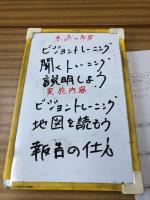 本日の予定
ビジョントレーニング
聞くトレーニング
説明しよう
実施内容
ビジョントレーニング
地図を読もう
報告の仕方